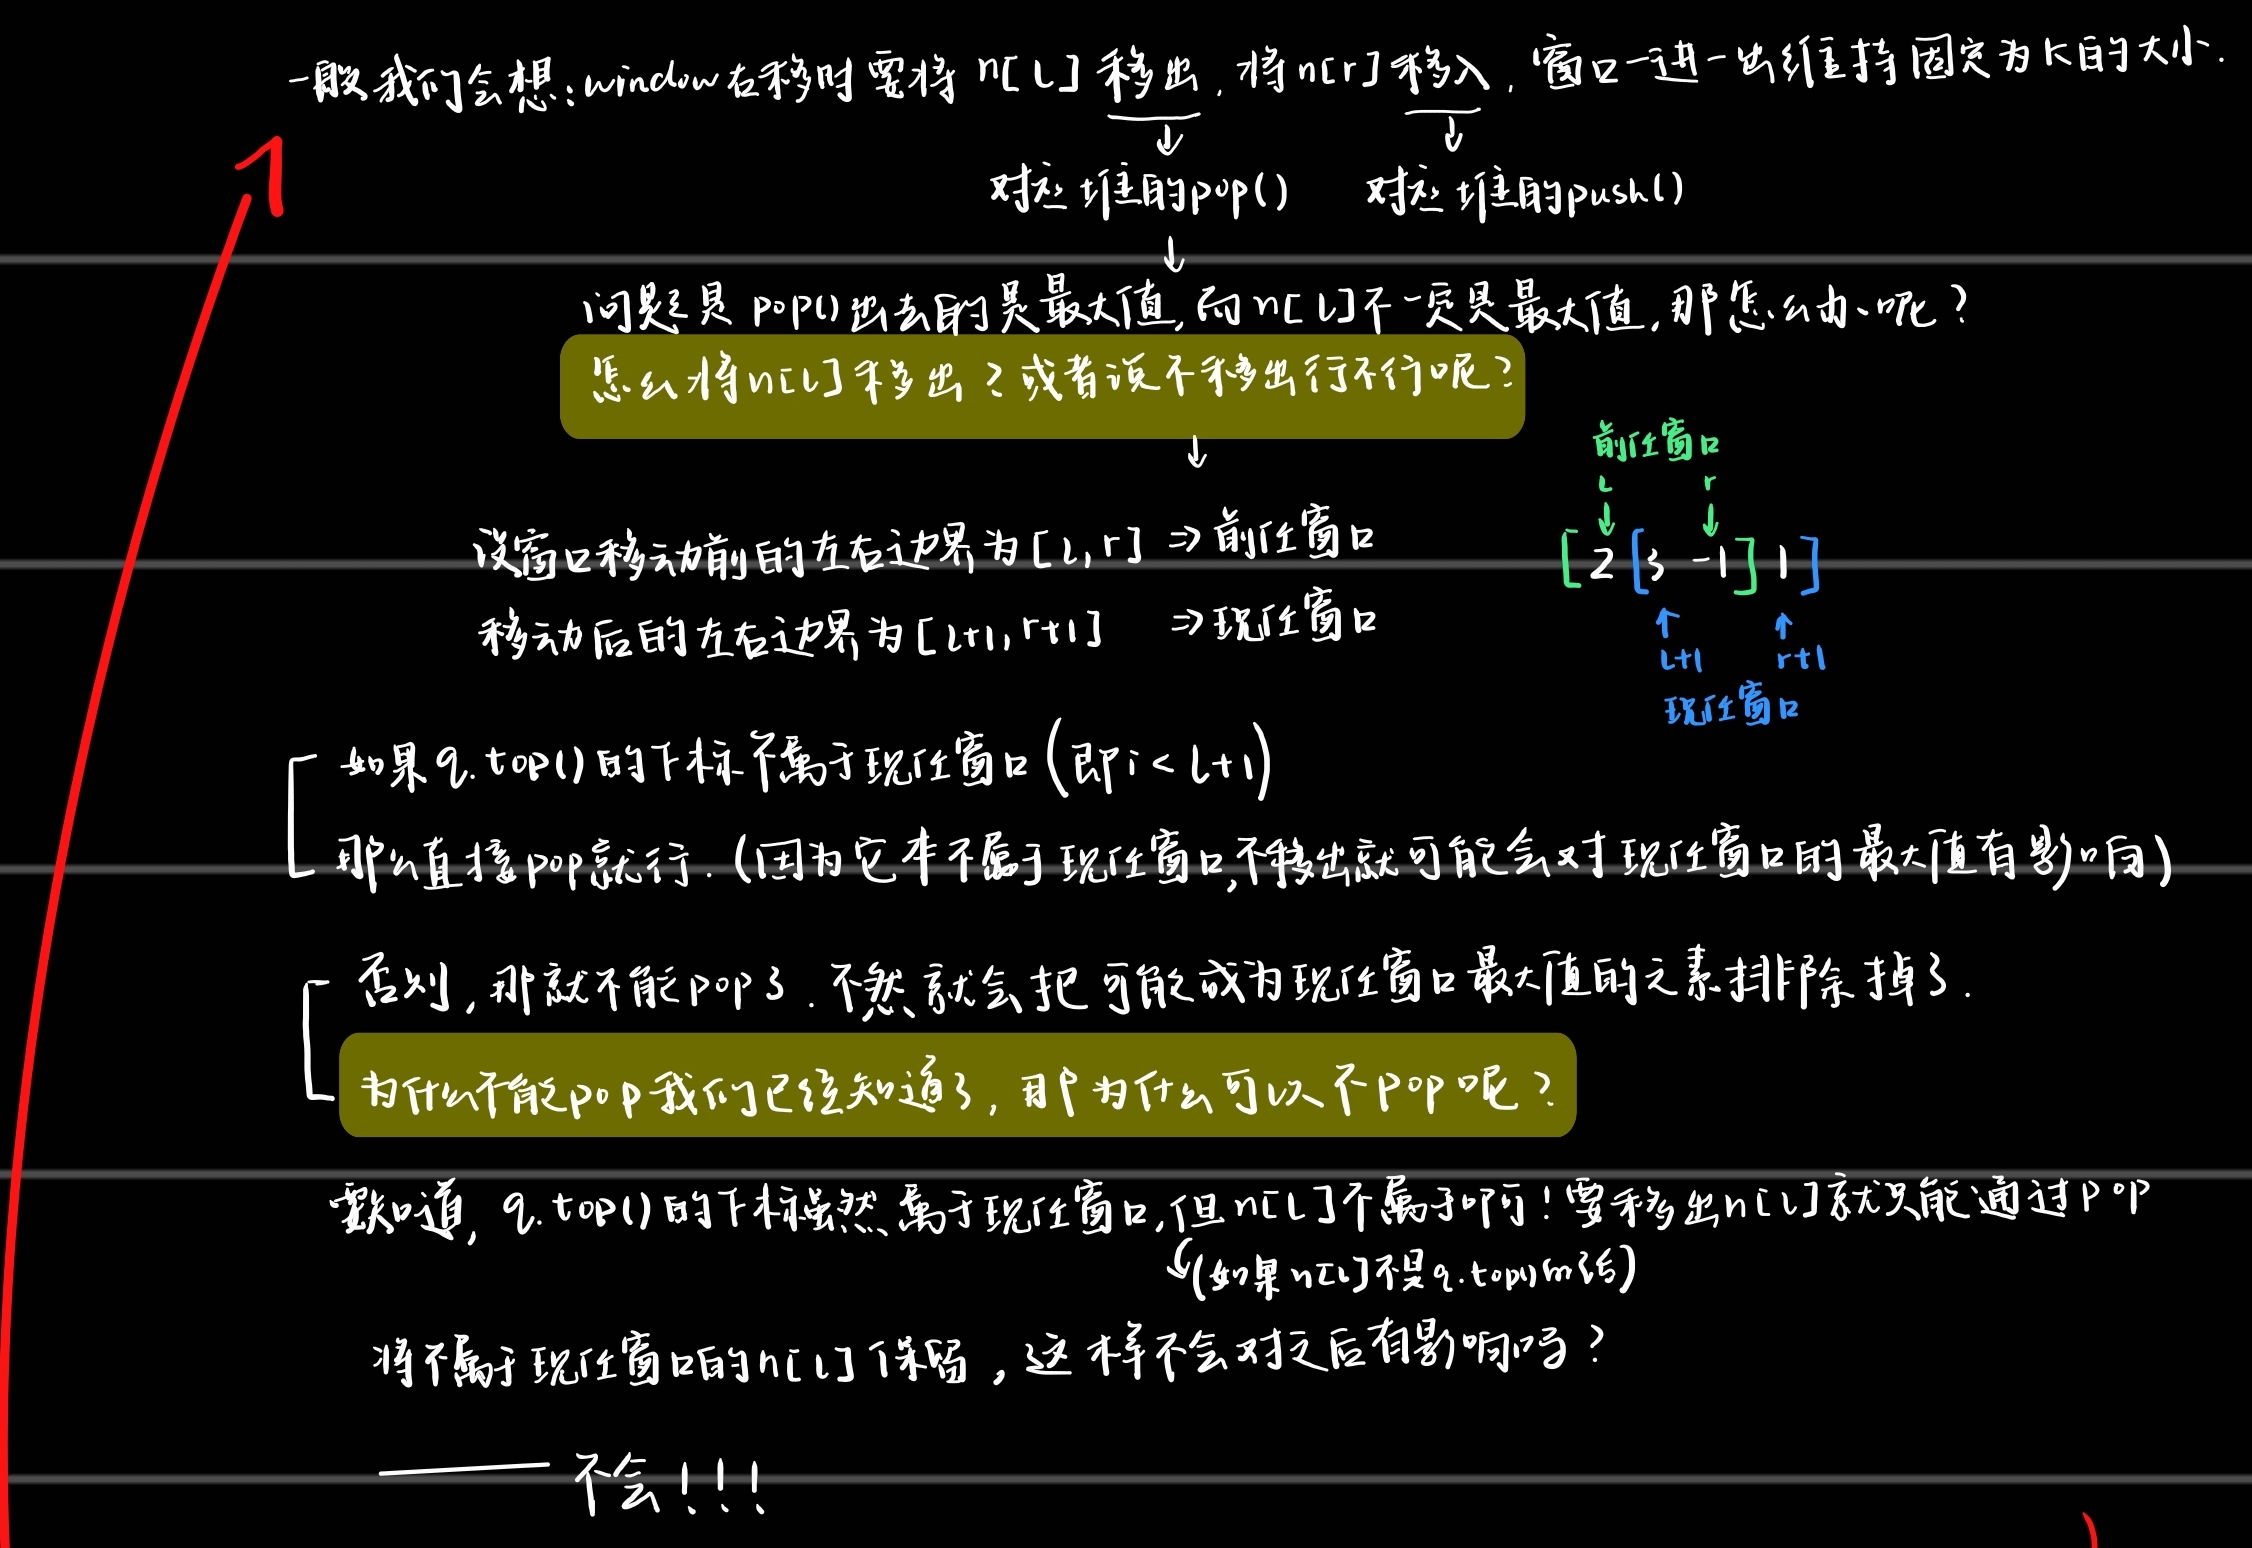 一般我们会想:window右移时要将 n[L] 移出,将n[r]移入,窗口一进一出维持固定为K的大小.
对应堆的pop() 对应堆的push()
问题是 pop()出去的是最大值,而n[L]不一定是最大值,那怎么办呢?
怎么将n[L]移出?或者说不移出行不行呢?
前任窗口
L r
设窗口移动前的左右边界为[L,r] ⇒前任窗口
[2[3 -1]1]
移动后的左右边界为[L+1,r+1] ⇒现任窗口
L+1 r+1
现任窗口
如果q.top()的下标不属于现任窗口(即i<L+1)
那么直接pop就行.(因为它本不属于现任窗口,不移出就可能会对现任窗口的最大值有影响)
否则,那就不能pop了.不然就会把可能成为现任窗口最大值的元素排除掉了.
为什么不能pop我们已经知道了,那为什么可以不pop呢?
要知道,q.top()的下标虽然属于现任窗口,但n[L]不属于啊!要移出n[L]就只能通过pop
(如果n[L]不是q.top()的话)
将不属于现任窗口的n[L]保留,这样不会对之后有影响吗?
—— 不会!!!